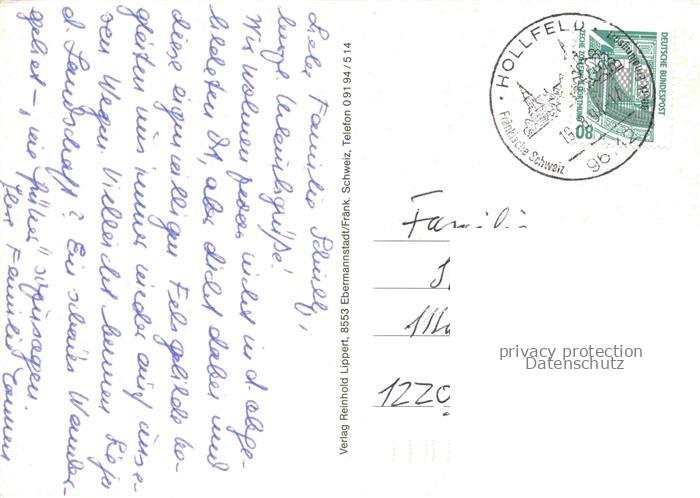 Liebe Familie Schulz,
kurze Urlaubsgrüße!
Wir wohnen zwar nicht in d. abge-
bildeten Ort, aber dicht dabei und
diese eigenwilligen Felsgebilde be-
gleiten uns immer wieder auf unse-
ren Wegen. Vielleicht kennen Sie
d. Landschaft? Ein schönes Wander-
gebiet –, wie "früher" sozusagen.
Ihre Familie
Verlag Reinhold Lippert, 8553 Ebermannstadt/Fränk. Schweiz, Telefon 0 91 94 / 5 14
HOLLFELD
Fränkische Schweiz
DEUTSCHE BUNDESPOST
80
Familie
1220
privacy protection
Datenschutz